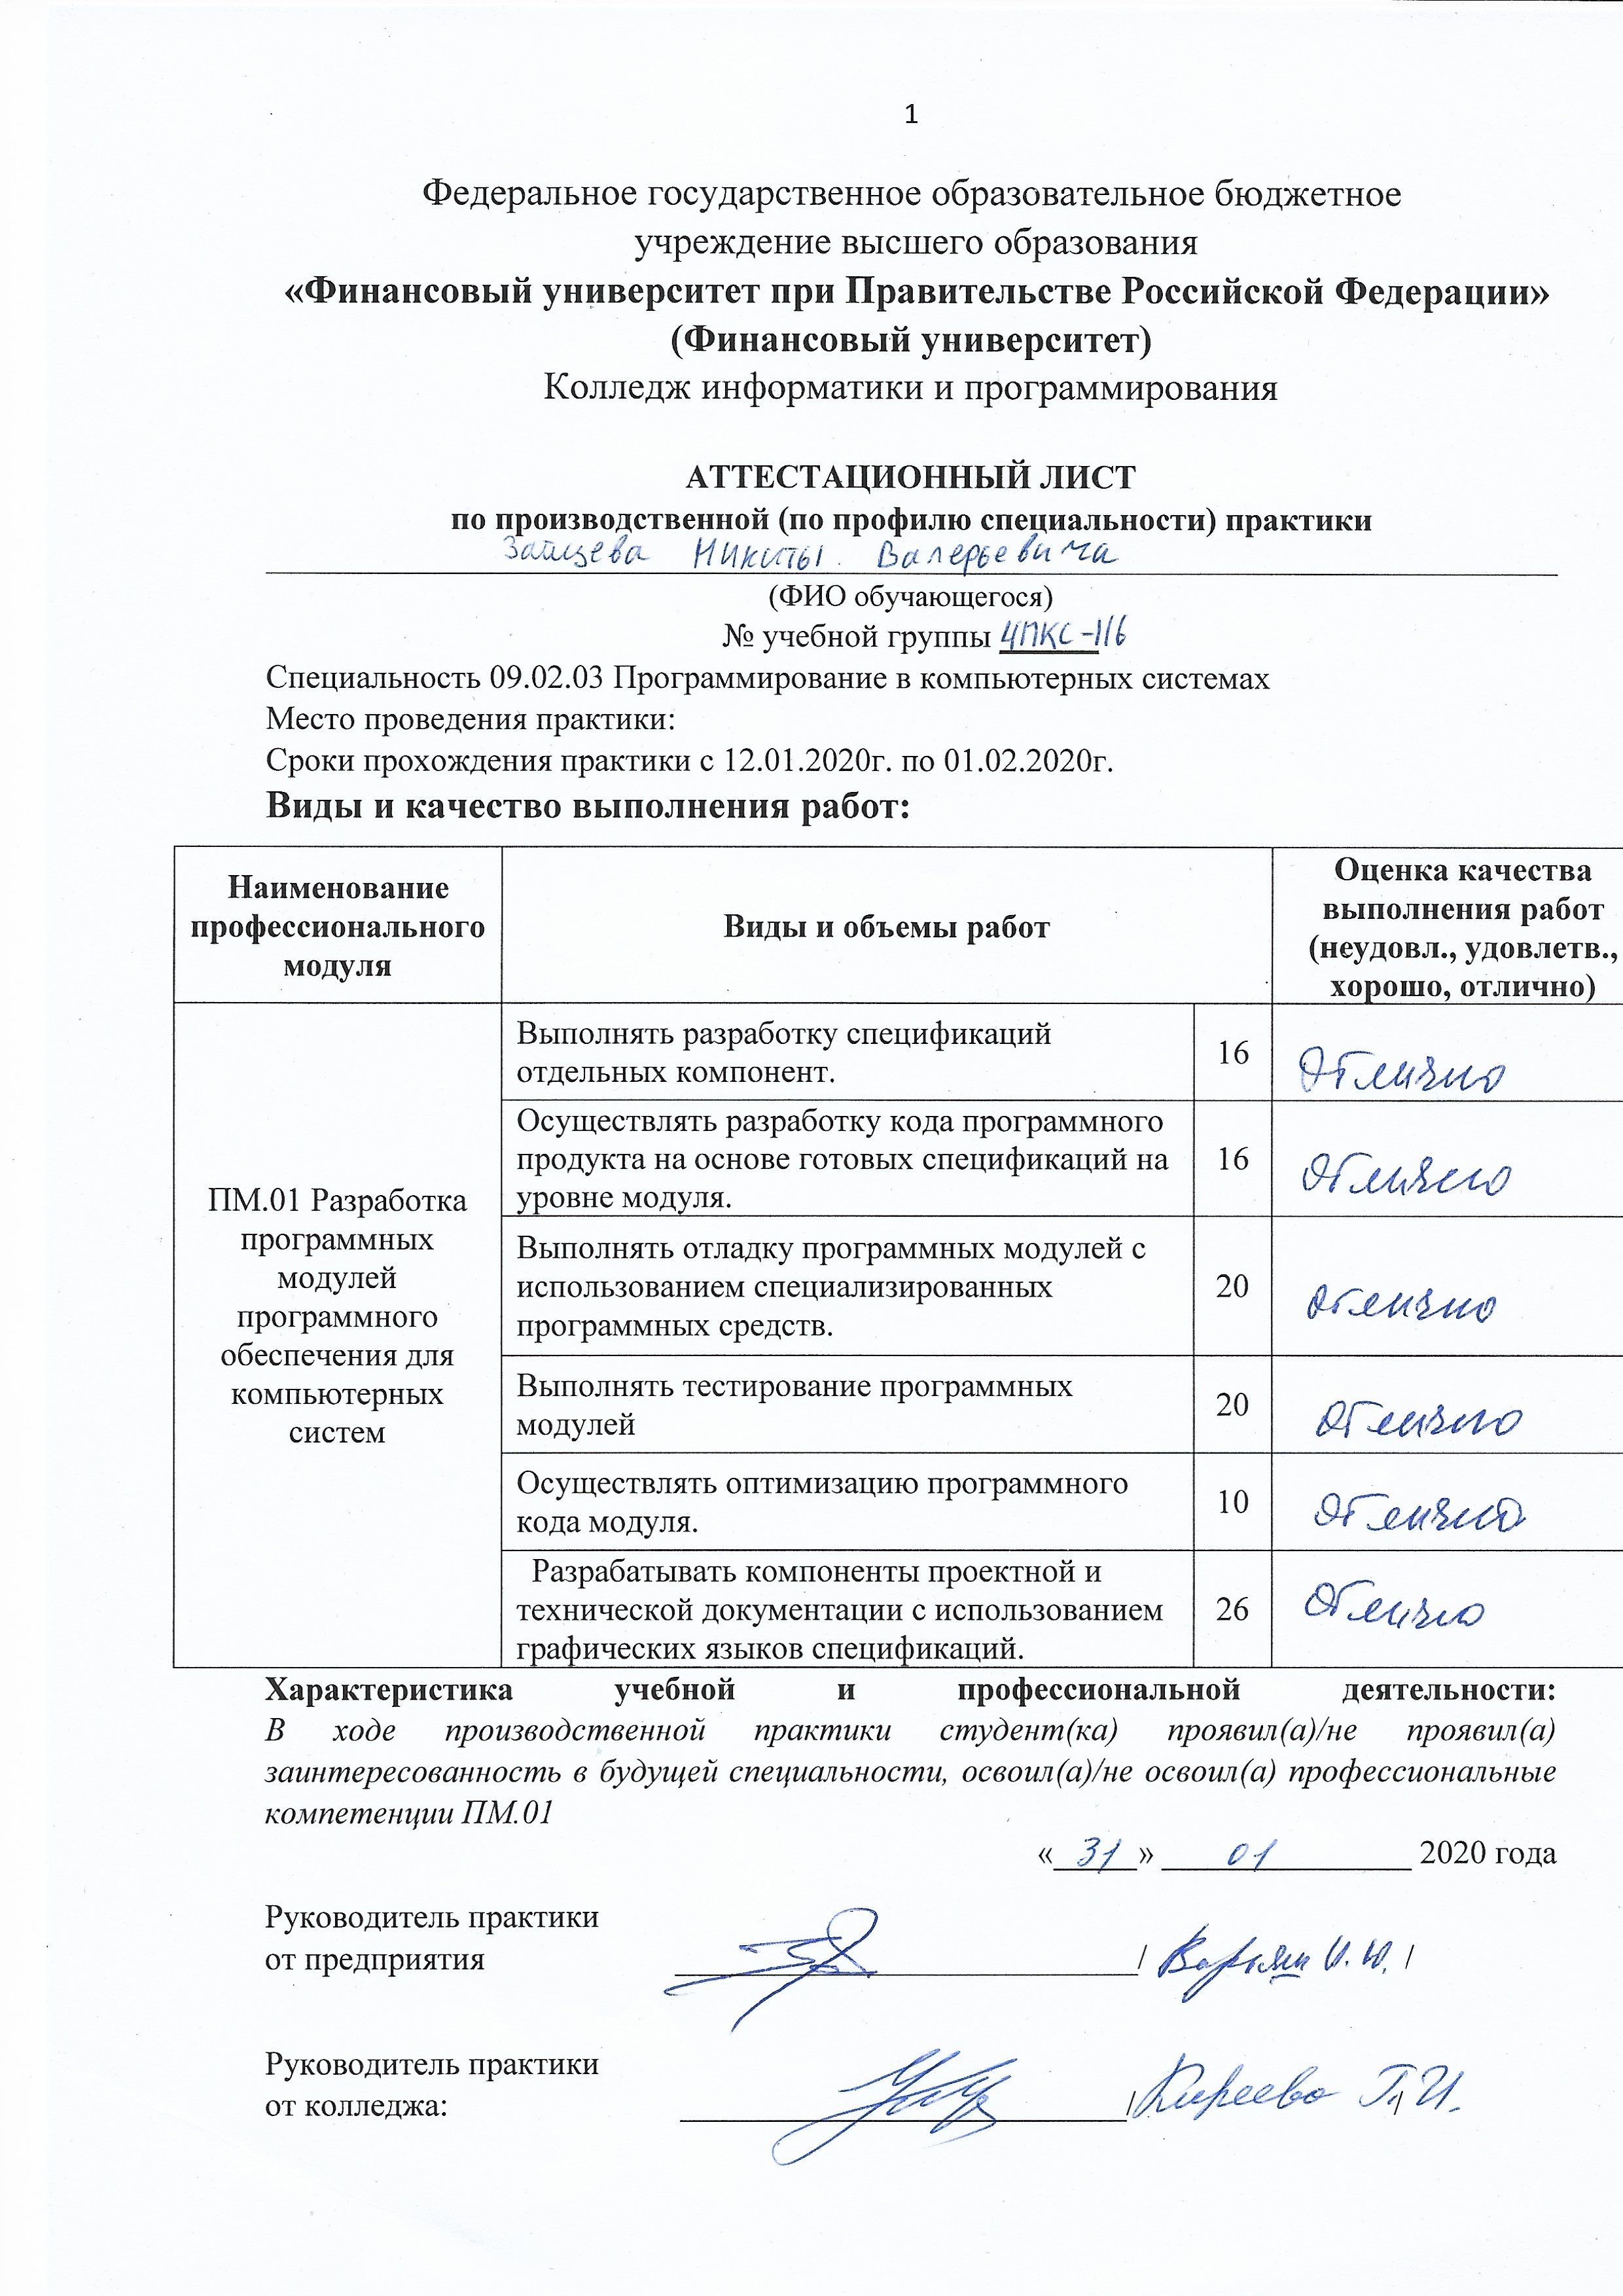 1
Федеральное государственное образовательное бюджетное
учреждение высшего образования
«Финансовый университет при Правительстве Российской Федерации»
(Финансовый университет)
Колледж информатики и программирования
АТТЕСТАЦИОННЫЙ ЛИСТ
по производственной (по профилю специальности) практики
Зайцева Никиты Валерьевича
(ФИО обучающегося)
№ учебной группы 4ПКС-116
Специальность 09.02.03 Программирование в компьютерных системах
Место проведения практики:
Сроки прохождения практики с 12.01.2020г. по 01.02.2020г.
Виды и качество выполнения работ:
Наименование
профессионального
модуля
Виды и объемы работ
Оценка качества
выполнения работ
(неудовл., удовлетв.,
хорошо, отлично)
ПМ.01 Разработка
программных
модулей
программного
обеспечения для
компьютерных
систем
Выполнять разработку спецификаций
отдельных компонент.
16
Отлично
Осуществлять разработку кода программного
продукта на основе готовых спецификаций на
уровне модуля.
16
Отлично
Выполнять отладку программных модулей с
использованием специализированных
программных средств.
20
отлично
Выполнять тестирование программных
модулей
20
отлично
Осуществлять оптимизацию программного
кода модуля.
10
отлично
Разрабатывать компоненты проектной и
технической документации с использованием
графических языков спецификаций.
26
Отлично
Характеристика учебной и профессиональной деятельности:
В ходе производственной практики студент(ка) проявил(а)/не проявил(а)
заинтересованность в будущей специальности, освоил(а)/не освоил(а) профессиональные
компетенции ПМ.01
«31» 01 2020 года
Руководитель практики
от предприятия / И. Ю. /
Руководитель практики
от колледжа: / Киреева Г. И. /